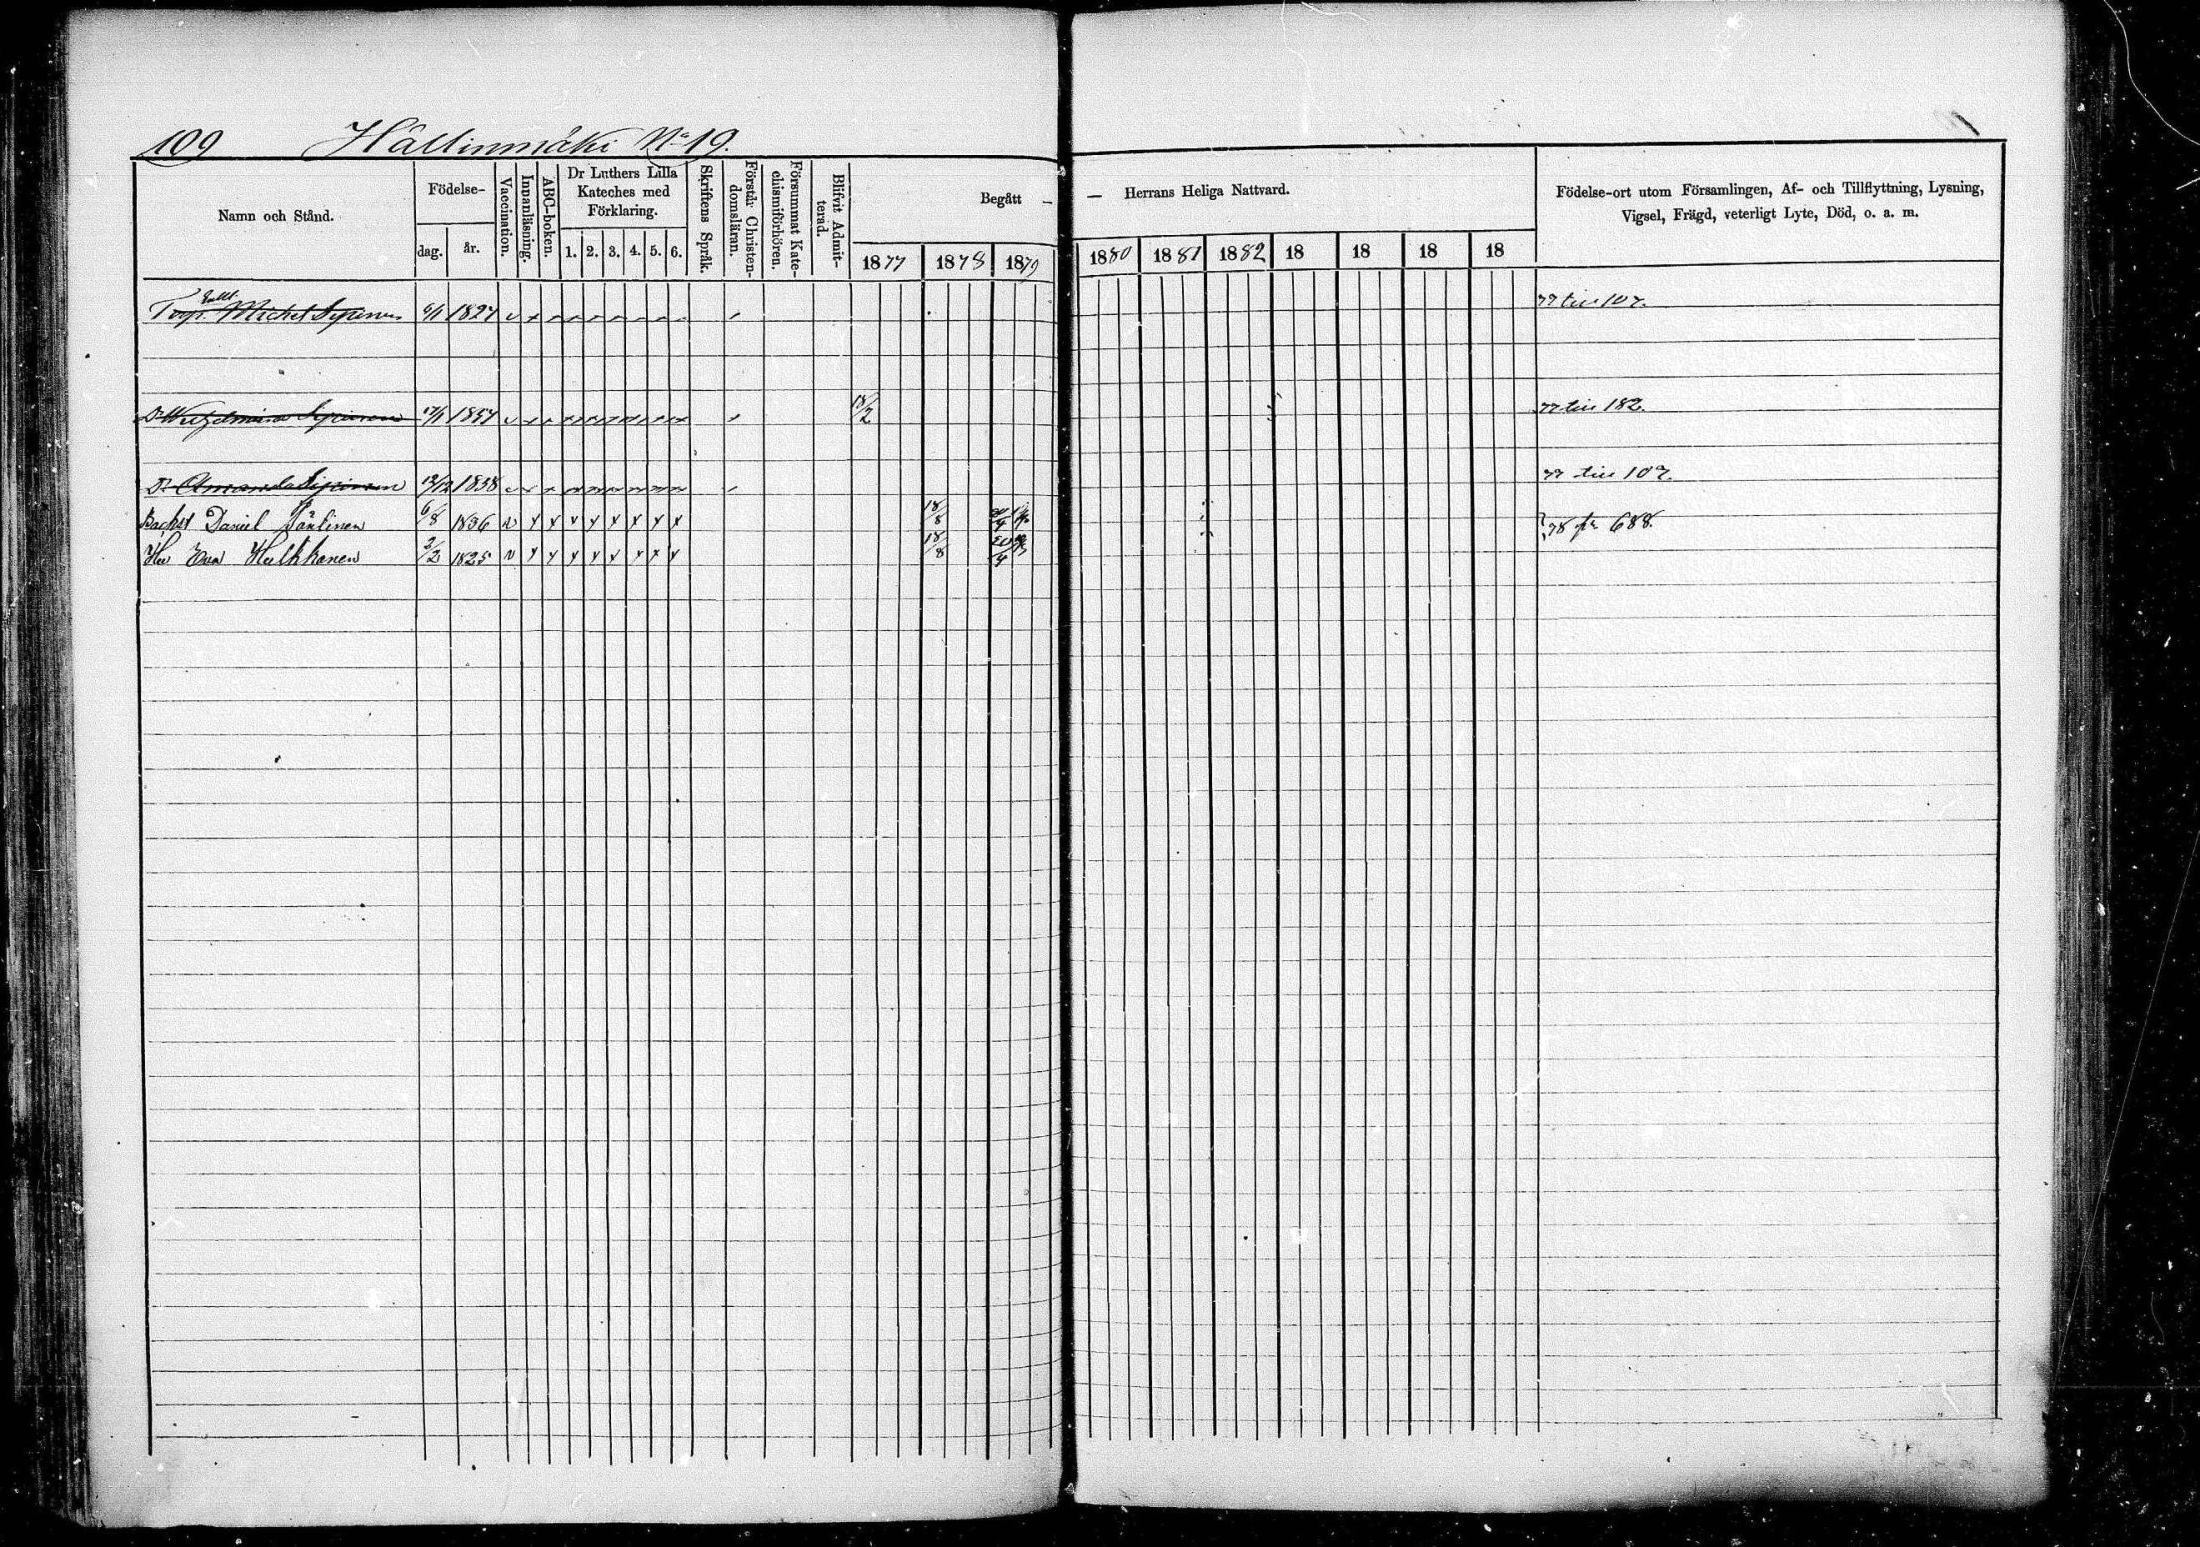 109 Hällinmäki No 19.
Namn och Stånd.
Födelse-
dag.
år.
Vaccination.
Innanläsning.
ABC-boken.
Dr Luthers Lilla
Kateches med
Förklaring.
1. 2. 3. 4. 5. 6.
Skriftens Språk.
Förstår Christen-
domsläran.
Försummat Kate-
chismiförhören.
Blifvit Admit-
terad.
Begått — — Herrans Heliga Nattvard.
1877 1878 1879 1880 1881 1882 18 18 18 18
Födelse-ort utom Församlingen, Af- och Tillflyttning, Lysning,
Vigsel, Frägd, veterligt Lyte, Död, o. a. m.
Michel Sipinen 6/1 1827 77 till 107.
D. Wilhelmina Sipinen 17/1 1857 18/2 77 till 182.
D. Amanda Sipinen 12/12 1858 77 till 107.
Bachst Daniel 6/8 1836 18/8 78 fr 688.
Hu Eva Hulkkonen 2/2 1825 18/8 20/4